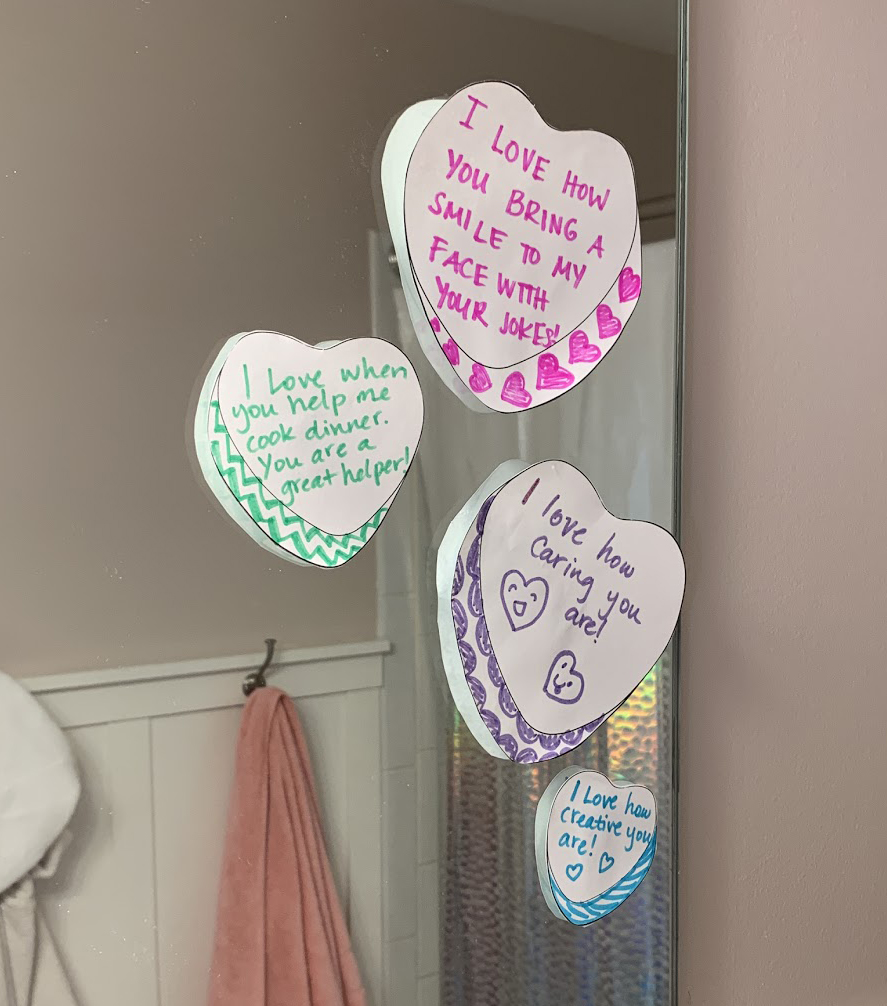 I LOVE HOW
YOU BRING A
SMILE TO MY
FACE WITH
YOUR JOKES!
I Love when
you help me
cook dinner.
You are a
great helper!
I love how
Caring you
are!
I Love how
creative you
are!